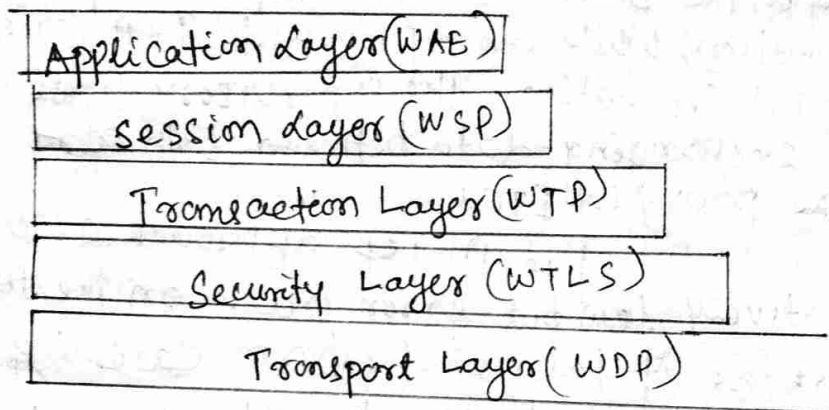 Application Layer(WAE)
session Layer (WSP)
Transaction Layer(WTP)
Security Layer (WTLS)
Transport Layer( WDP)